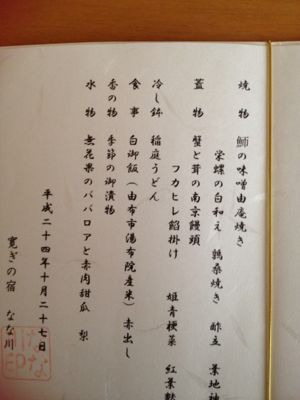 焼 物 鰤の味噌由庵焼き
栄螺の白和え 鶉桑焼き 酢立 葉地神
蓋 物 蟹と茸の南京饅頭
フカヒレ餡掛け 姫青梗菜 紅葉麩
冷し鉢 稲庭うどん
食 事 白御飯(由布市湯布院産米)赤出し
香の物 季節の御漬物
水 物 無花果のババロアと赤肉甜瓜 梨
平成二十四年十月二十七日
寛ぎの宿 なな川
なな川印